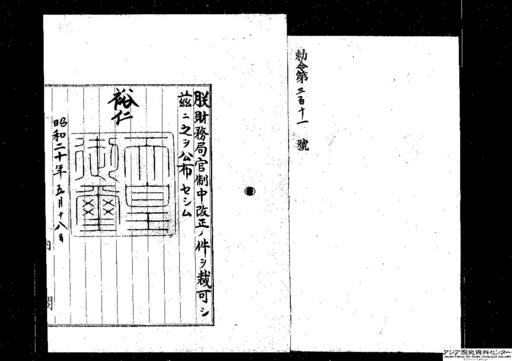 勅令第三百十一號
朕財務局官制中改正ノ件ヲ裁可シ
茲ニ之ヲ公布セシム
裕仁
天皇御璽
昭和二十年五月十八日
アジア歴史資料センター